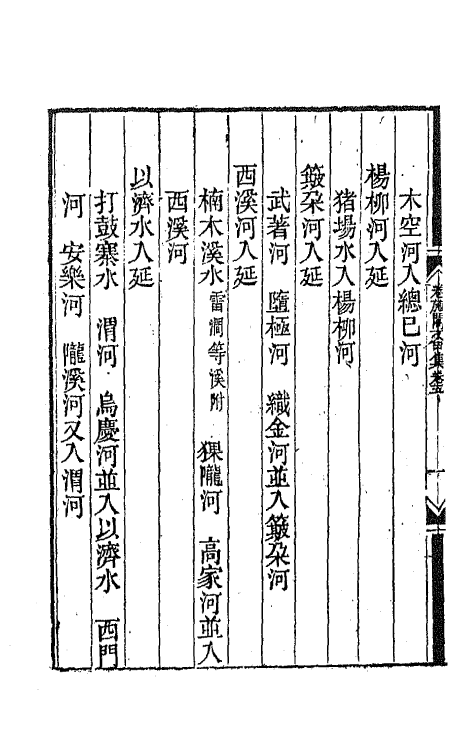 木空河入總巳河
楊柳河入延
猪場水入楊柳河
簸朶河入延
武著河　墮極河　織金河並入簸朶河
西溪河入延
楠木溪水雷澗等溪附　猓隴河　高家河並入
西溪河
以濟水入延
打鼓寨水　渭河　烏慶河並入以濟水　西門
河　安樂河　隴溪河又入渭河